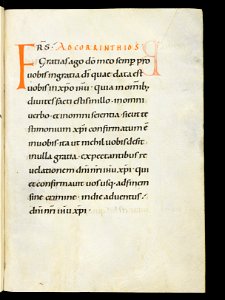 FRS. AD CORINTHIOS
Gratias ago dō meo semp pro
vobis in gratia dī quae data est
vobis in xp̄o ihū · quia in omnib;
divites facti estis in illo · in omni
verbo · et in omni scientia · sicut tes
timonium xp̄i confirmatum ē
in vobis ita ut nihil vobis desit
in ulla gratia · expectantibus re
velationem dn̄i n̄ri ihū xp̄i · qui
et confirmavit vos usq; ad finem
sine crimine · in die adventus
dn̄i n̄ri ihū xp̄i ·